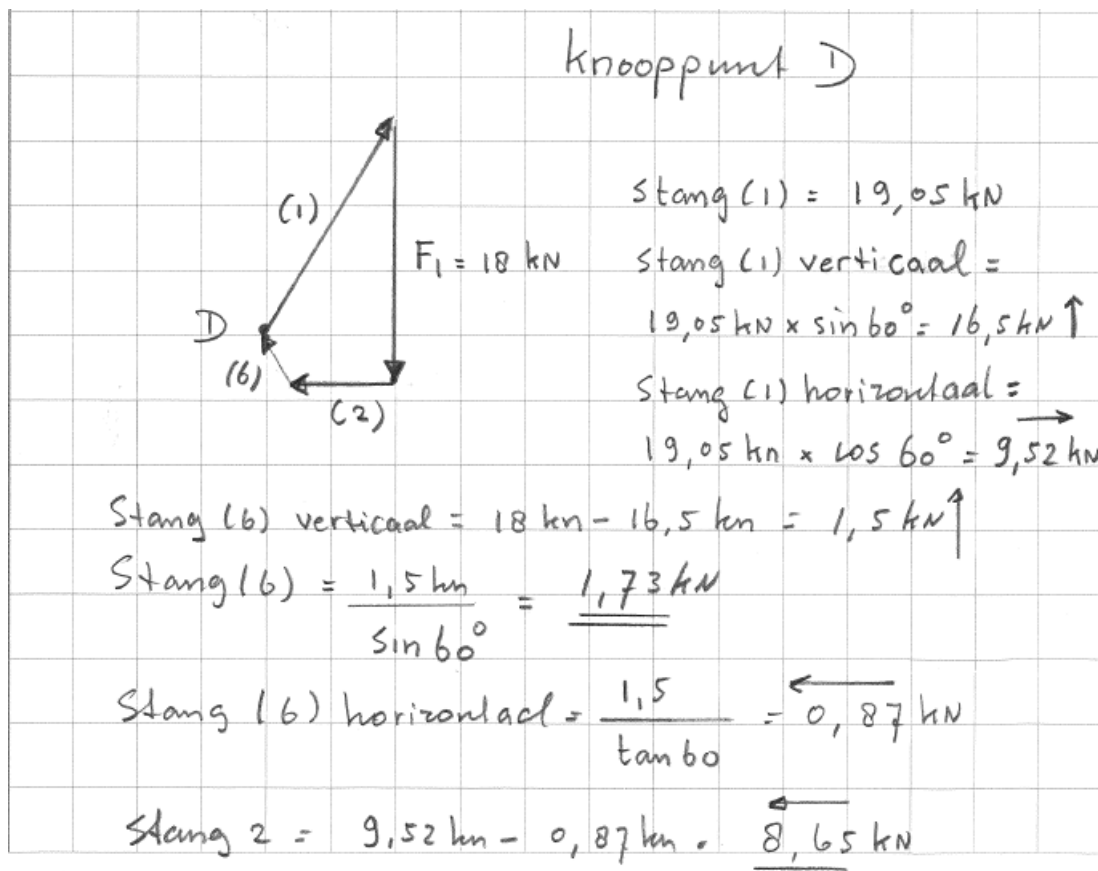 knooppunt D
(1)
F₁ = 18 kN
D
(6)
(2)
Stang (1) = 19,05 kN
Stang (1) verticaal =
19,05 kN × sin 60° = 16,5 kN ↑
Stang (1) horizontaal =
19,05 kn × cos 60° = 9,52 kN
Stang (6) verticaal = 18 kn - 16,5 kn = 1,5 kN ↑
Stang (6) = 1,5 kn / sin 60° = 1,73 kN
Stang (6) horizontaal = 1,5 / tan 60 = 0,87 kN
Stang 2 = 9,52 kn - 0,87 kn = 8,65 kN